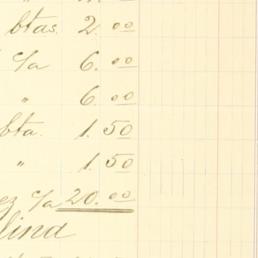 btas. 2.00
c/a 6.00
" 6.00
bta. 1.50
" 1.50
ez c/a 20.00
lina